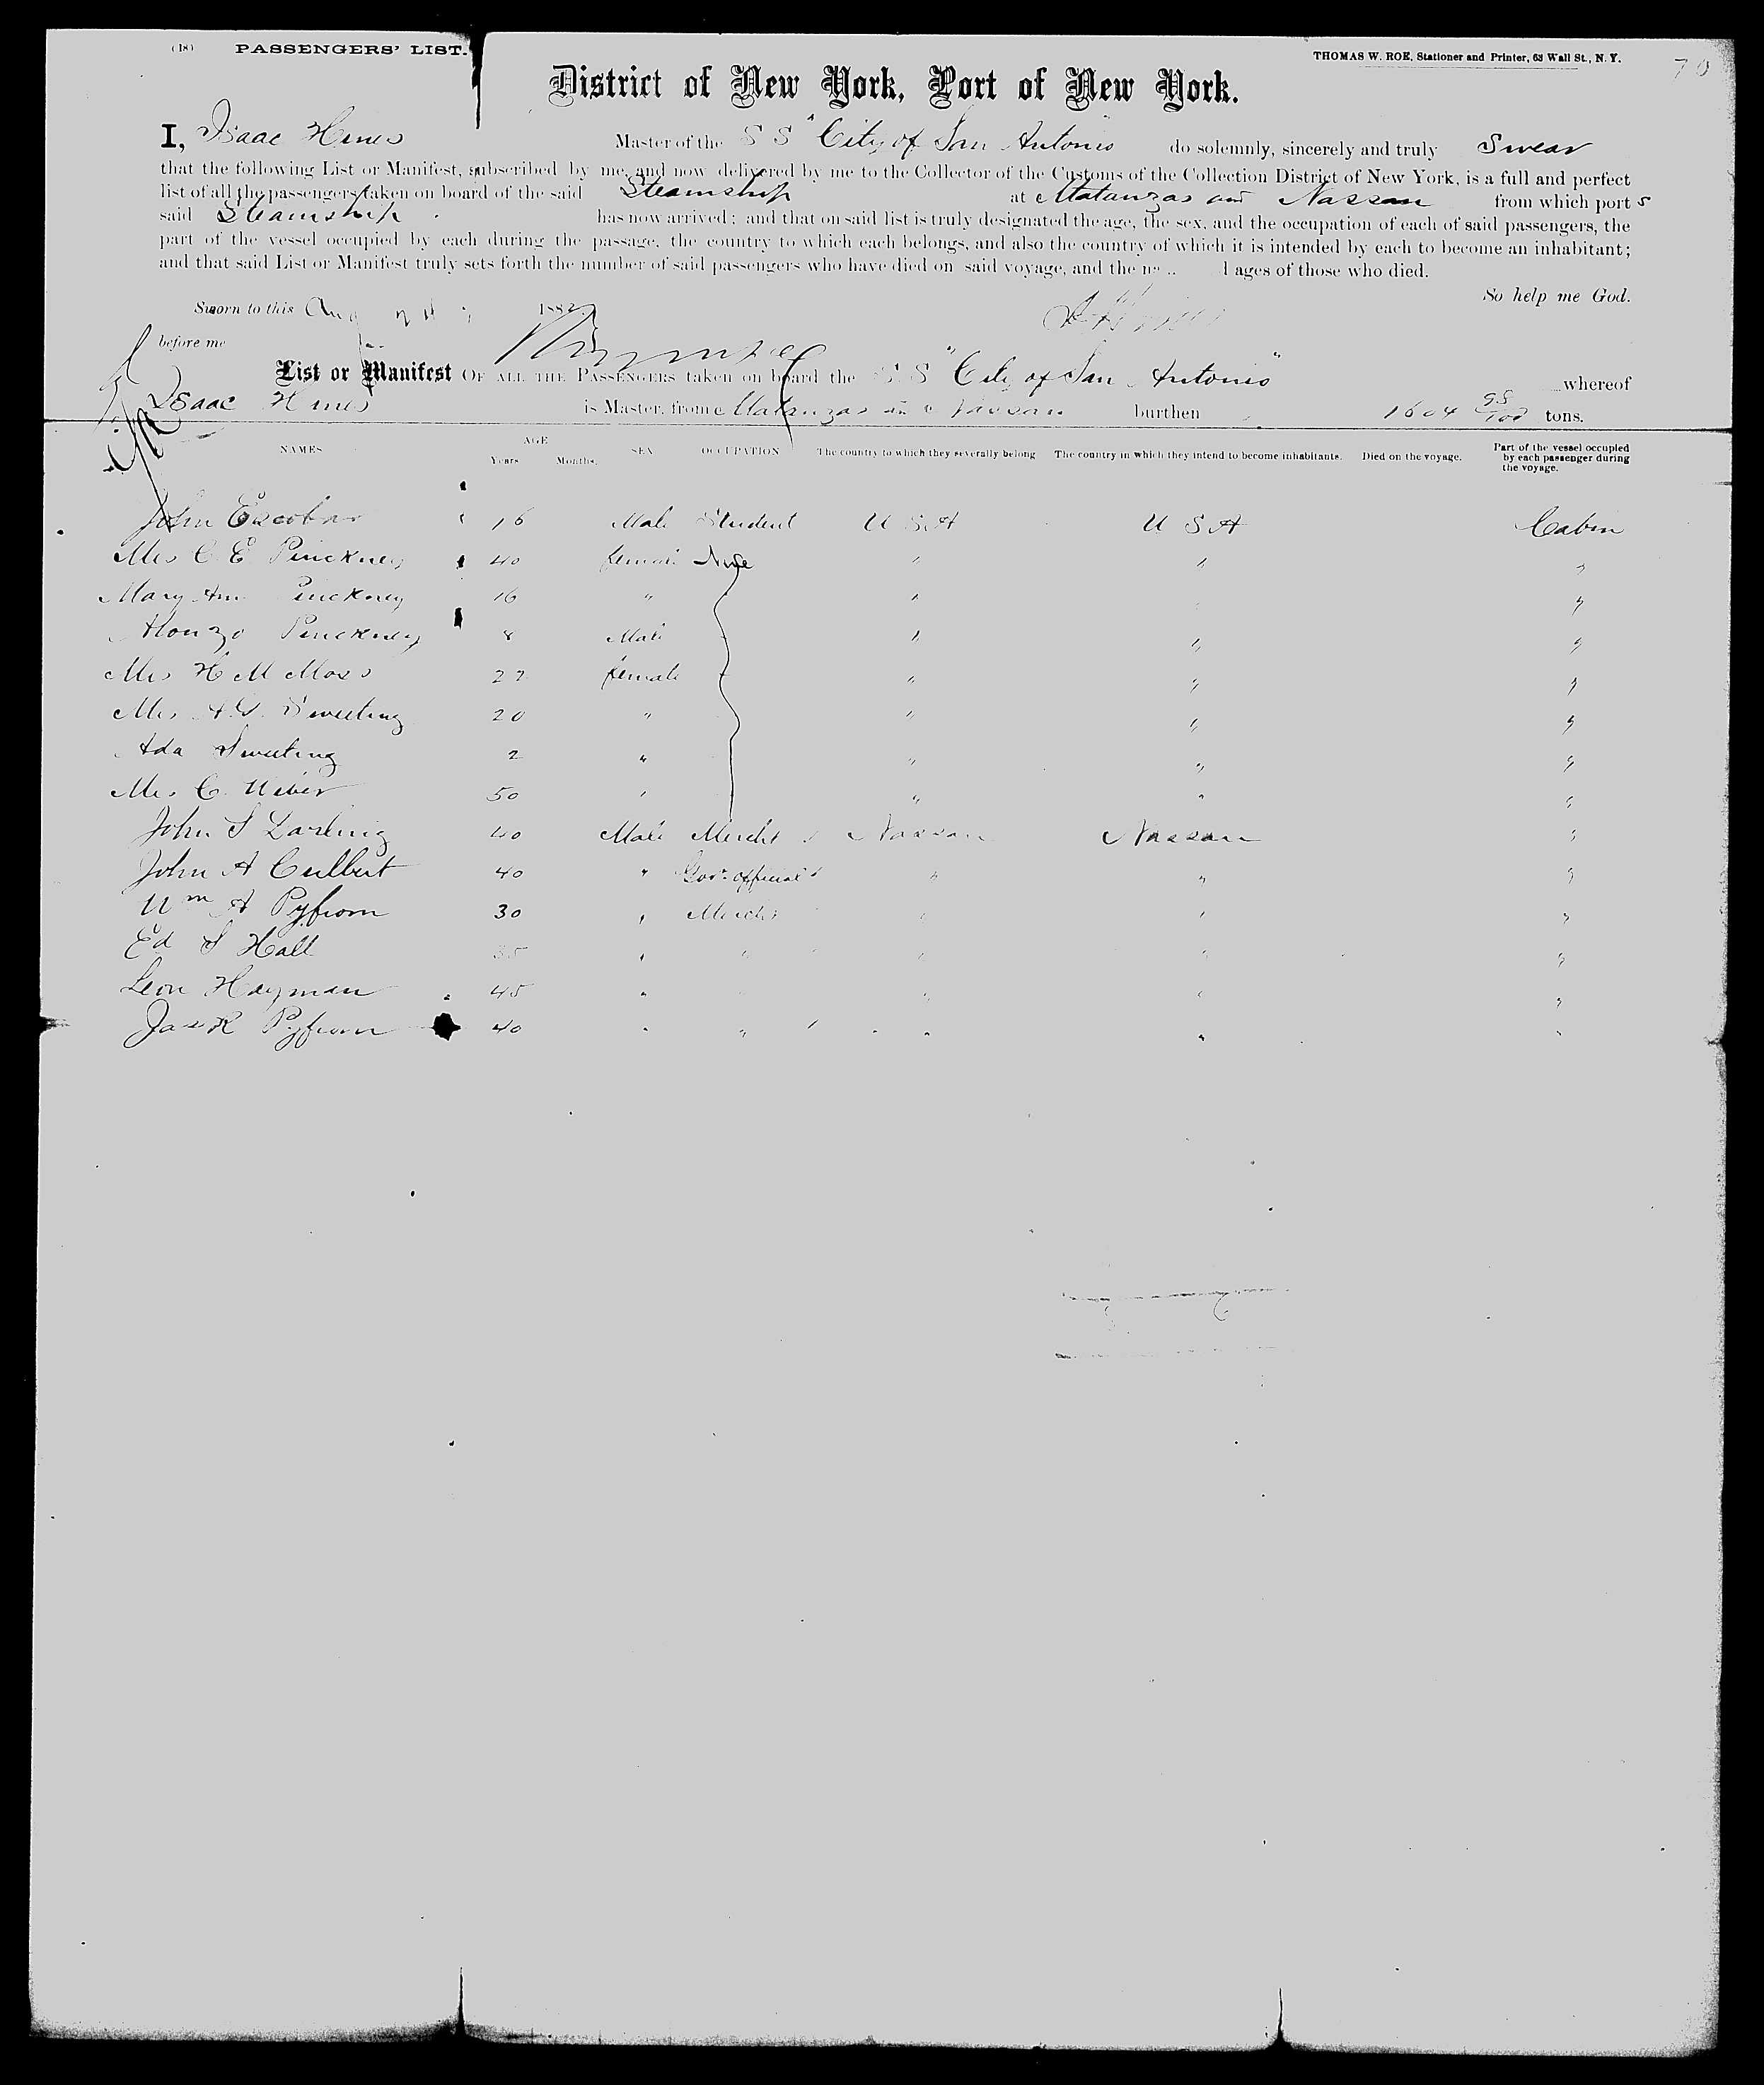 (18) PASSENGERS' LIST.
THOMAS W. ROE, Stationer and Printer, 63 Wall St., N. Y.
70
District of New York, Port of New York.
I, Isaac Hines Master of the S S "City of San Antonio" do solemnly, sincerely and truly Swear
that the following List or Manifest, subscribed by me, and now delivered by me to the Collector of the Customs of the Collection District of New York, is a full and perfect
list of all the passengers taken on board of the said Steamship at Matanzas and Nassau from which ports
said Steamship has now arrived; and that on said list is truly designated the age, the sex, and the occupation of each of said passengers, the
part of the vessel occupied by each during the passage, the country to which each belongs, and also the country of which it is intended by each to become an inhabitant;
and that said List or Manifest truly sets forth the number of said passengers who have died on said voyage, and the ages of those who died.
So help me God.
Sworn to this Aug 1882
before me
List or Manifest OF ALL THE PASSENGERS taken on board the S. S "City of San Antonio" whereof
Isaac Hines is Master, from Matanzas and Nassau burthen 1604 98/100 tons.
NAMES AGE Years Months. SEX OCCUPATION The country to which they severally belong The country in which they intend to become inhabitants. Died on the voyage. Part of the vessel occupied by each passenger during the voyage.
John Escobar 16 Male Student U S A U S A Cabin
Mrs C E Pinckney 40 female None " " "
Mary Ann Pinckney 16 " " " "
Alonzo Pinckney 8 Male " " "
Mrs H M Moss 27 female " " "
Mrs A. Sweeting 20 " " " "
Ada Sweeting 2 " " " "
Mrs C. Weber 50 " " " "
John S Darling 40 Male Mercht Nassau Nassau "
John A Culbert 40 " Govt official " " "
Wm A Pyfrom 30 " Mercht " " "
Ed S Hall 35 " " " " "
Leon Hayman 45 " " " "
Jas R Pyfrom 40 " " " " "